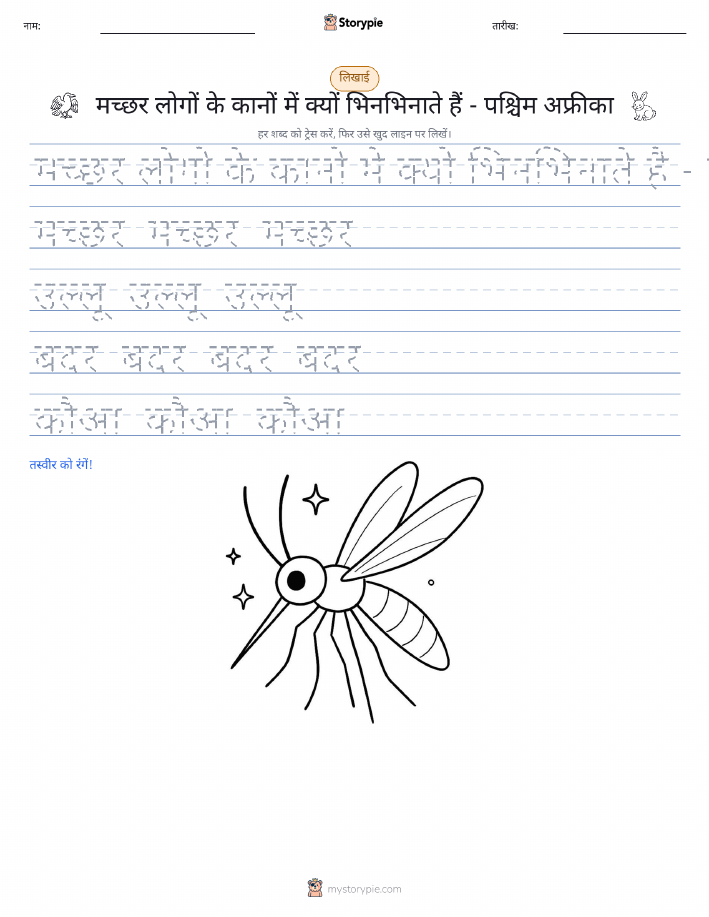 नाम:
Storypie
तारीख:
लिखाई
मच्छर लोगों के कानों में क्यों भिनभिनाते हैं - पश्चिम अफ्रीका
हर शब्द को ट्रेस करें, फिर उसे खुद लाइन पर लिखें।
मच्छर लोगों के कानों में क्यों भिनभिनाते हैं -
मच्छर मच्छर मच्छर
उल्लू उल्लू उल्लू
बंदर बंदर बंदर बंदर
कौआ कौआ कौआ
तस्वीर को रंगें!
mystorypie.com